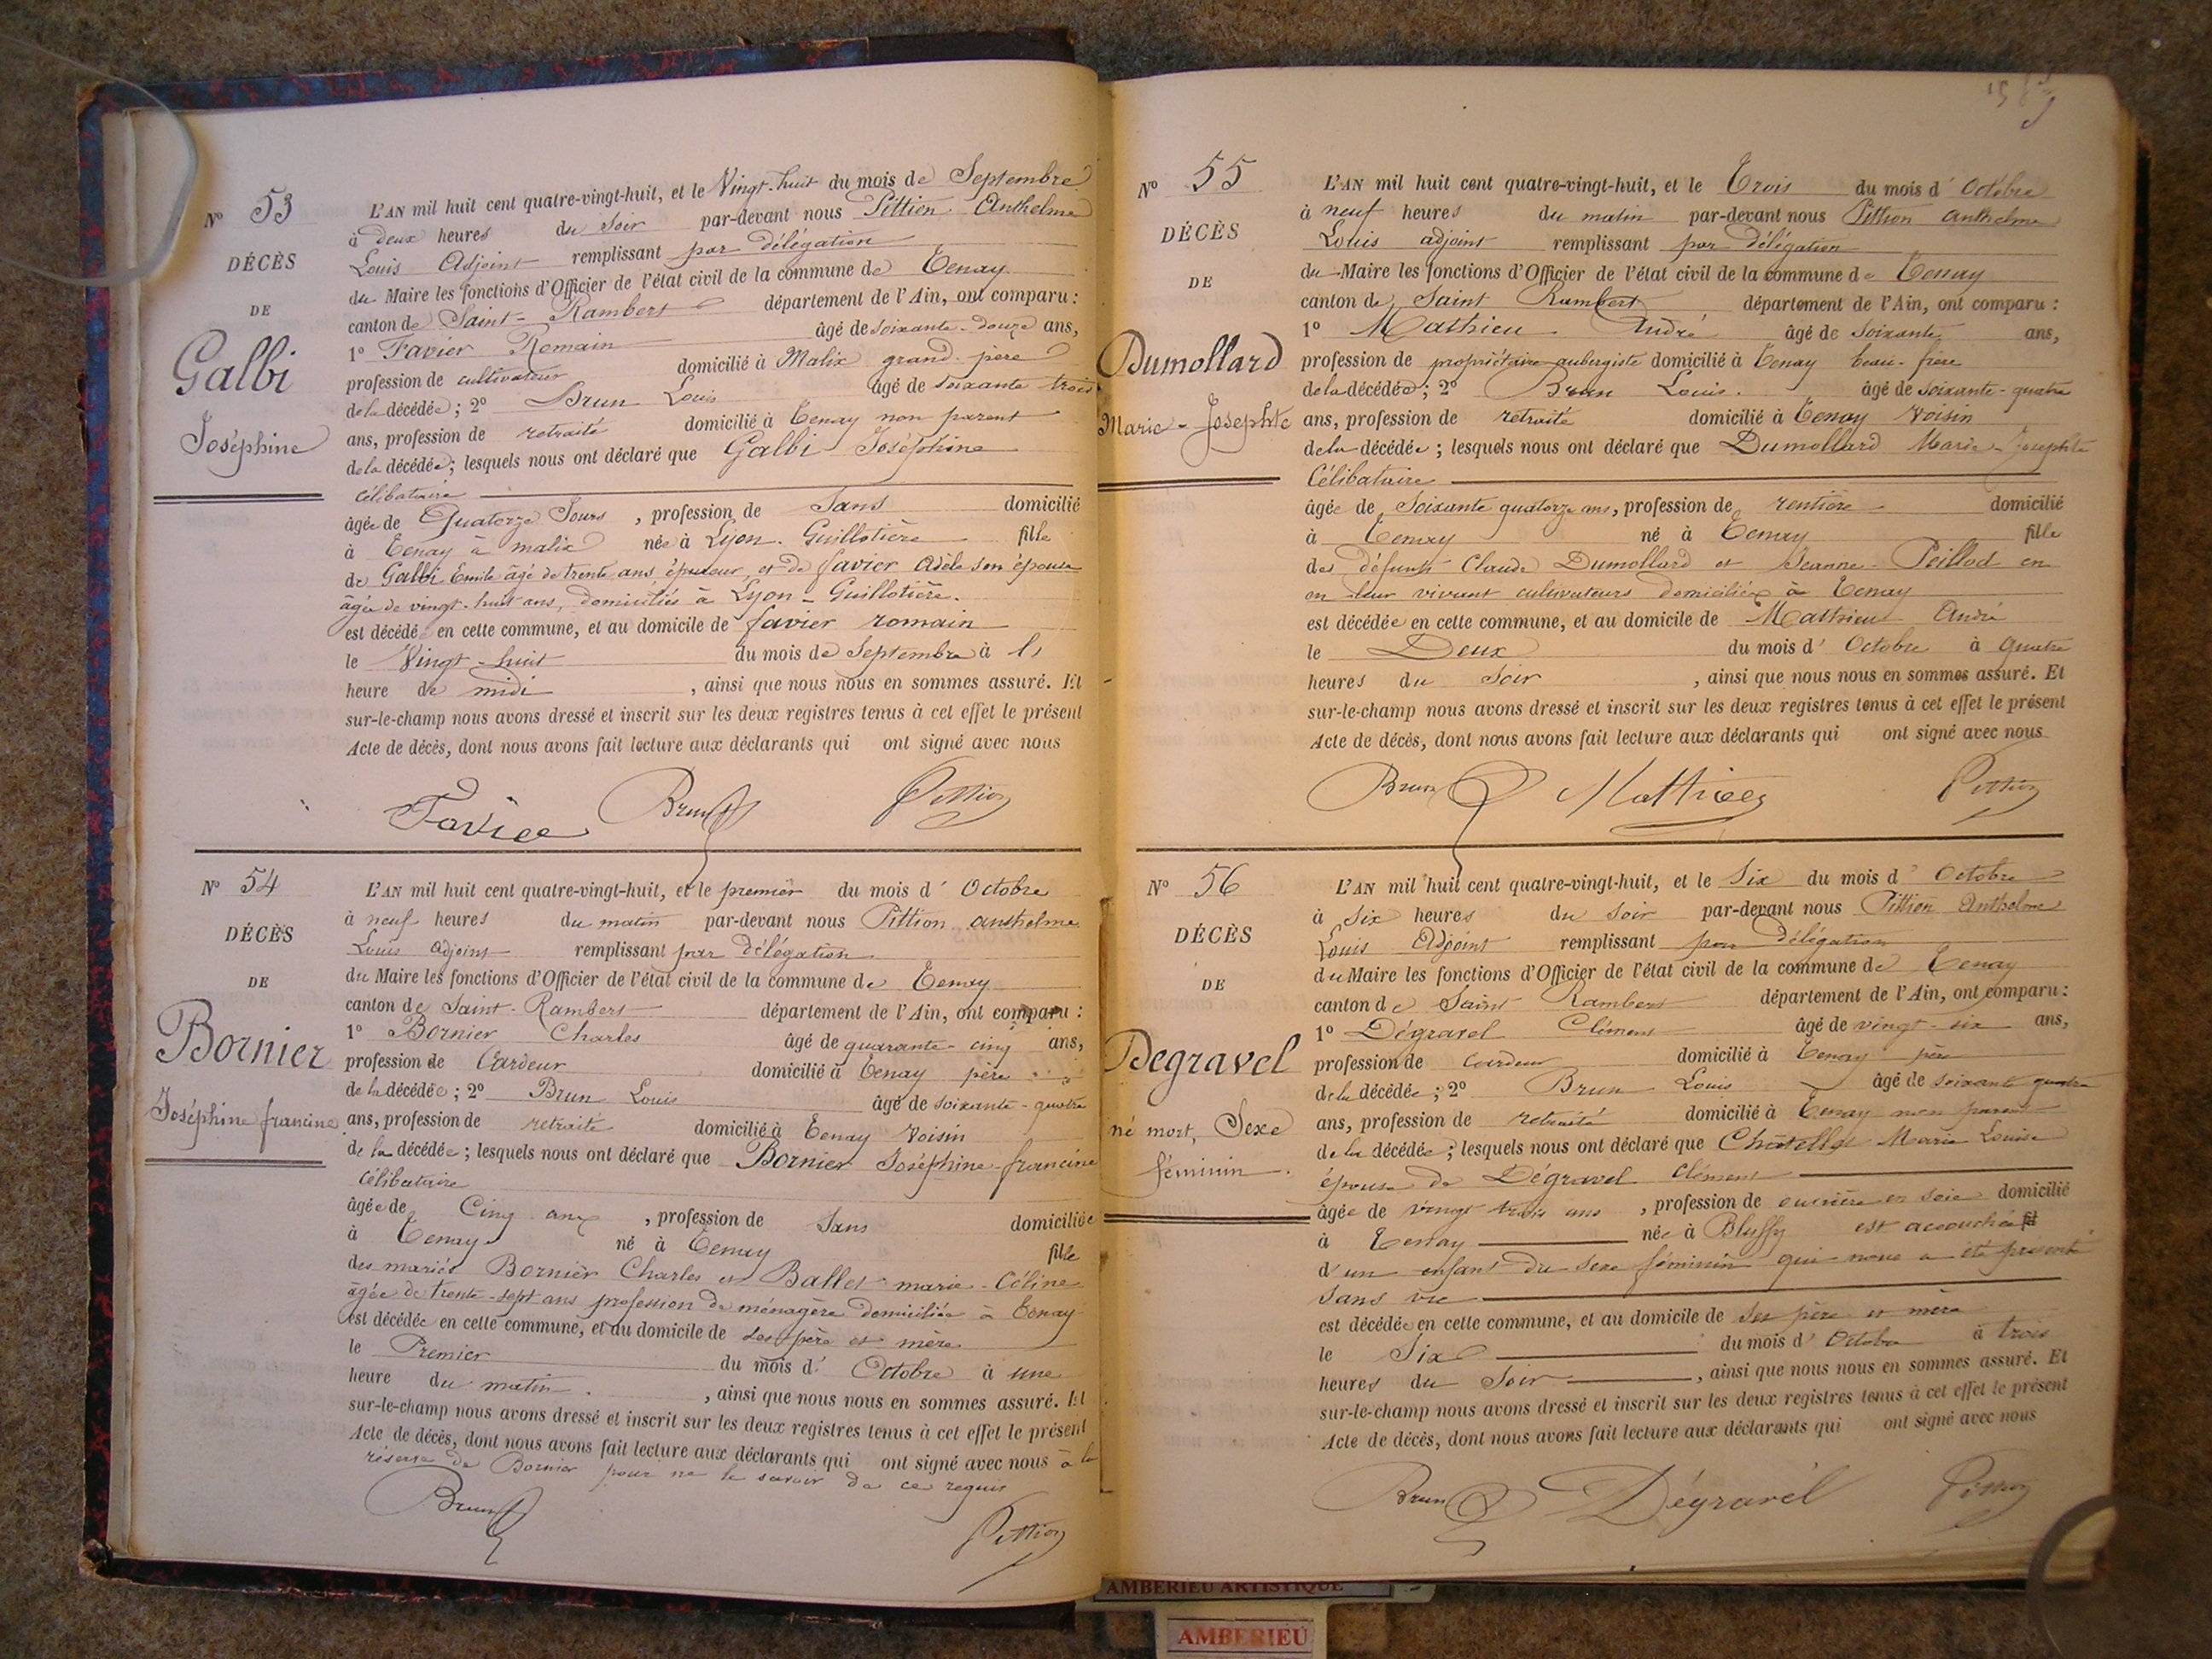 N° 53
DÉCÈS
DE
Galbi
Joséphine
L'AN mil huit cent quatre-vingt-huit, et le Vingt-huit du mois de Septembre
à deux heures du soir par-devant nous Pittion Anthelme
Louis Adjoint remplissant par délégation
du Maire les fonctions d'Officier de l'état civil de la commune de Tenay
canton de Saint-Rambert département de l'Ain, ont comparu :
1° Favier Romain âgé de soixante-douze ans,
profession de cultivateur domicilié à Malix grand-père
de la décédée ; 2° Brun Louis âgé de soixante trois
ans, profession de retraité domicilié à Tenay non parent
de la décédée ; lesquels nous ont déclaré que Galbi Joséphine
célibataire
âgée de Quatorze Jours , profession de Sans domicilié
à Tenay à malix née à Lyon-Guillotière fille
de Galbi Emile âgé de trente ans, et de favier Adèle son épouse
âgée de vingt-huit ans, domiciliés à Lyon-Guillotière.
est décédé en cette commune, et au domicile de favier romain
le Vingt-huit du mois de Septembre à
heure de midi , ainsi que nous nous en sommes assuré. Et
sur-le-champ nous avons dressé et inscrit sur les deux registres tenus à cet effet le présent
Acte de décès, dont nous avons fait lecture aux déclarants qui ont signé avec nous
Brun Pittion
N° 54
DÉCÈS
DE
Bornier
Joséphine francine
L'AN mil huit cent quatre-vingt-huit, et le premier du mois d' Octobre
à neuf heures du matin par-devant nous Pittion anthelme
Louis adjoint remplissant par délégation
du Maire les fonctions d'Officier de l'état civil de la commune de Tenay
canton de Saint-Rambert département de l'Ain, ont comparu :
1° Bornier Charles âgé de quarante-cinq ans,
profession de Cardeur domicilié à Tenay père
de la décédée ; 2° Brun Louis âgé de soixante-quatre
ans, profession de retraité domicilié à Tenay Voisin
de la décédée ; lesquels nous ont déclaré que Bornier Joséphine-francine
Célibataire
âgée de Cinq ans , profession de Sans domiciliée
à Tenay né à Tenay fille
des mariés Bornier Charles et Ballet marie-Céline
âgée de trente-sept ans profession de ménagère domiciliée à Tenay
est décédée en cette commune, et au domicile de ses père et mère
le Premier du mois d' Octobre à une
heure du matin. , ainsi que nous nous en sommes assuré. Et
sur-le-champ nous avons dressé et inscrit sur les deux registres tenus à cet effet le présent
Acte de décès, dont nous avons fait lecture aux déclarants qui ont signé avec nous à la
réserve de Bornier pour ne le savoir de ce requis
Brun Pittion
N° 55
DÉCÈS
DE
Dumollard
Marie-Josephte
L'AN mil huit cent quatre-vingt-huit, et le Trois du mois d' Octobre
à neuf heures du matin par-devant nous Pittion anthelme
Louis adjoint remplissant par délégation
du Maire les fonctions d'Officier de l'état civil de la commune de Tenay
canton de Saint Rambert département de l'Ain, ont comparu :
1° Mathieu André âgé de soixante ans,
profession de propriétaire aubergiste domicilié à Tenay beau-frère
de la décédée ; 2° Brun Louis. âgé de soixante-quatre
ans, profession de retraité domicilié à Tenay Voisin
de la décédée ; lesquels nous ont déclaré que Dumollard Marie-Josephte
Célibataire
âgée de Soixante quatorze ans, profession de rentière domicilié
à Tenay né à Tenay fille
des défunts Claude Dumollard et Jeanne Peillod en
en leur vivant cultivateurs domiciliés à Tenay
est décédée en cette commune, et au domicile de Mathieu André
le Deux du mois d' Octobre à quatre
heures du Soir , ainsi que nous nous en sommes assuré. Et
sur-le-champ nous avons dressé et inscrit sur les deux registres tenus à cet effet le présent
Acte de décès, dont nous avons fait lecture aux déclarants qui ont signé avec nous
Brun Mathieu Pittion
N° 56
DÉCÈS
DE
Degravel
né mort, Sexe
féminin.
L'AN mil huit cent quatre-vingt-huit, et le Six du mois d' Octobre
à Six heures du Soir par-devant nous Pittion Anthelme
Louis Adjoint remplissant par délégation
du Maire les fonctions d'Officier de l'état civil de la commune de Tenay
canton de Saint Rambert département de l'Ain, ont comparu :
1° Dégravel Clément âgé de vingt-six ans,
profession de cardeur domicilié à Tenay père
de la décédée ; 2° Brun Louis âgé de soixante quatre
ans, profession de retraité domicilié à Tenay non parent
de la décédée ; lesquels nous ont déclaré que Marie Louise
épouse de Dégravel Clément
âgée de vingt trois ans , profession de ouvrière en soie domicilié
à Tenay née à Bluffy est accouchée
d'un enfant du sexe féminin qui nous a été présenté
sans vie
est décédée en cette commune, et au domicile de ses père et mère
le Six du mois d' Octobre à trois
heures du Soir , ainsi que nous nous en sommes assuré. Et
sur-le-champ nous avons dressé et inscrit sur les deux registres tenus à cet effet le présent
Acte de décès, dont nous avons fait lecture aux déclarants qui ont signé avec nous
Brun Dégravel Pittion
AMBERIEU ARTISTIQUE
AMBERIEU